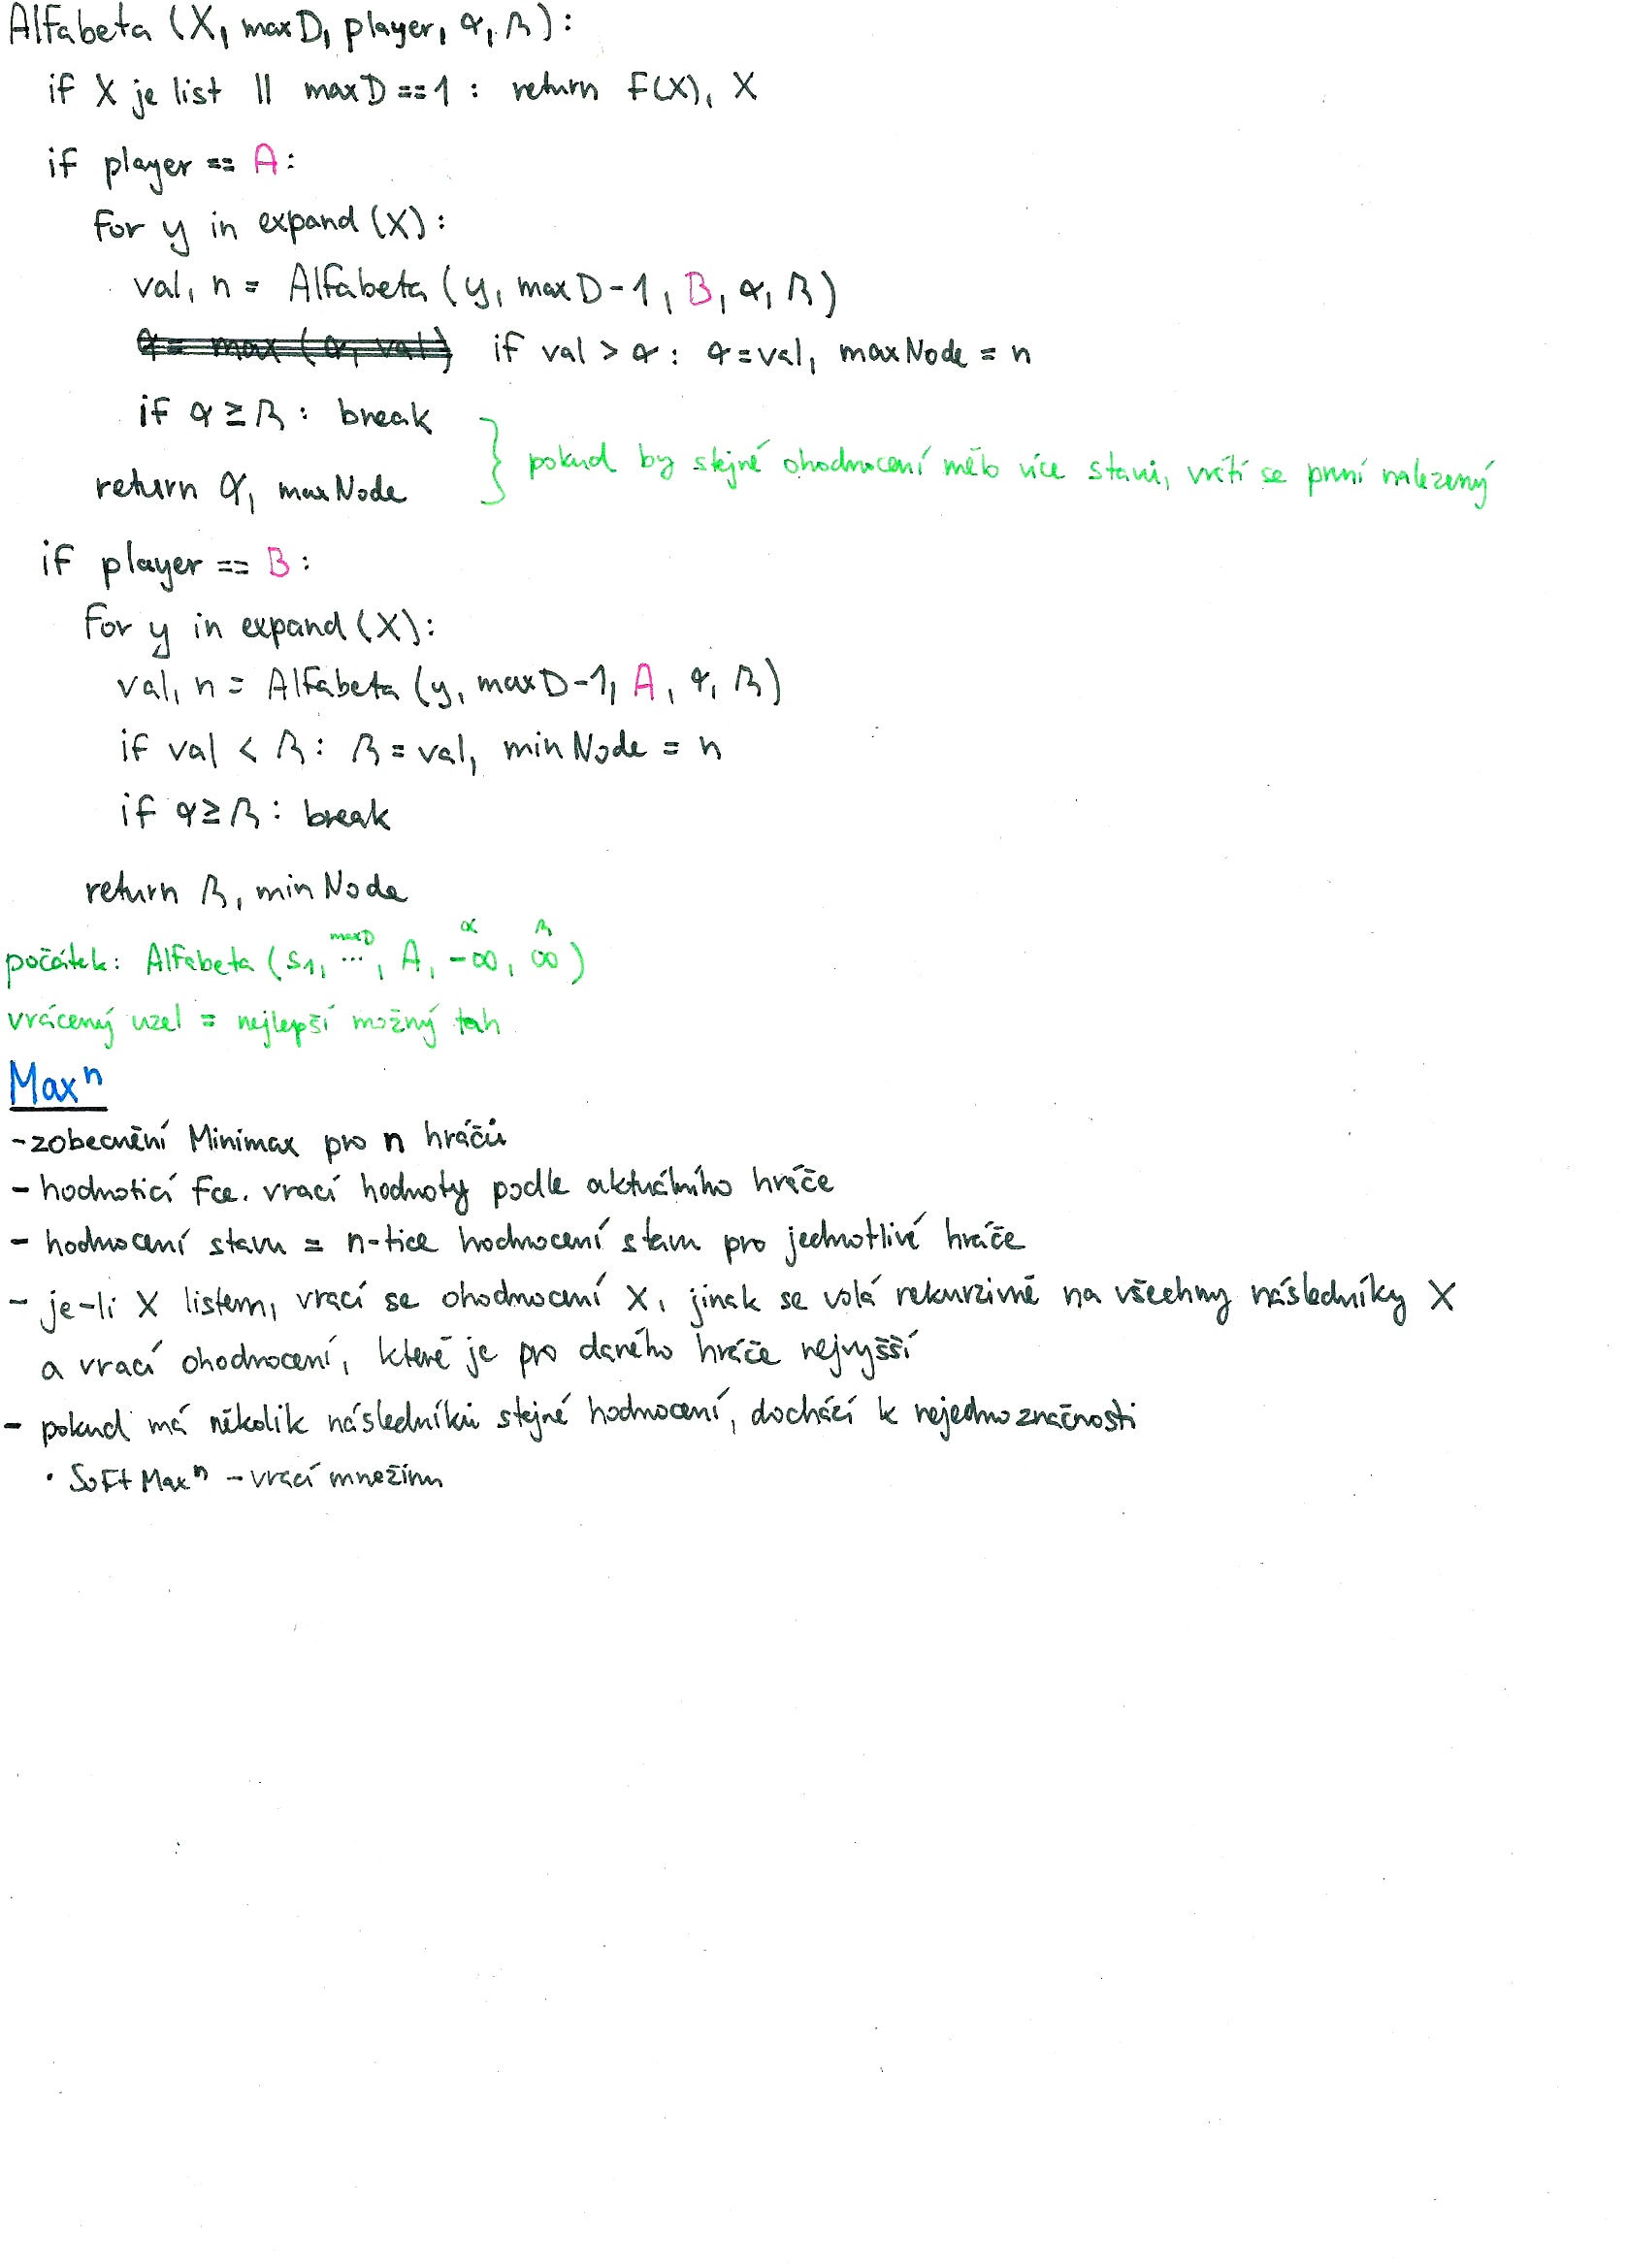 Alfabeta (X, maxD, player, α, β):
if X je list || maxD == 1 : return f(X), X
if player == A:
for y in expand (X):
val, n = Alfabeta (y, maxD-1, B, α, β)
α = max (α, val) if val > α : α = val, maxNode = n
if α ≥ β : break
return α, maxNode
pokud by stejné ohodnocení mělo více stavů, vrátí se první nalezený
if player == B:
for y in expand (X):
val, n = Alfabeta (y, maxD-1, A, α, β)
if val < β : β = val, minNode = n
if α ≥ β : break
return β, minNode
maxD α β
počátek: Alfabeta (s1, ..., A, -∞, ∞)
vrácený uzel = nejlepší možný tah
Maxⁿ
- zobecnění Minimax pro n hráčů
- hodnotící fce. vrací hodnoty podle aktuálního hráče
- hodnocení stavu = n-tice hodnocení stavu pro jednotlivé hráče
- je-li X listem, vrací se ohodnocení X, jinak se volá rekurzivně na všechny následníky X
a vrací ohodnocení, které je pro daného hráče nejvyšší
- pokud má několik následníků stejné hodnocení, dochází k nejednoznačnosti
• SoftMaxⁿ - vrací množinu